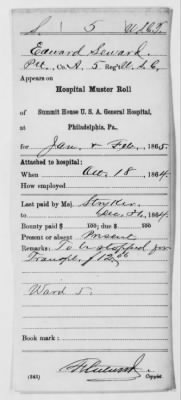 S. 5 U.S.C.T.
Edward Seward
Pvt., Co. A, 5 Reg't U.S.C.
Appears on
Hospital Muster Roll
of Summit House U. S. A. General Hospital,
at Philadelphia, Pa.,
for Jan. & Feb., 1865.
Attached to hospital:
When Oct. 18, 1864.
How employed
Last paid by Maj. Stryker
to Dec. 31, 1864
Bounty paid $ 100; due $ 100
Present or absent Present
Remarks: To be stopped for
Transp. $12.00
Ward 5.
Book mark:
(343) Copyist.